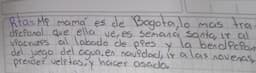 Rta: Mi mama es de Bogota, lo mas tra
dicional que ella ve, es semana santa, ir al
viacrucis al labado de pies y la bendicion
del juego del agua, en navidad, ir a las novenas
prender velitas, y hacer asado.